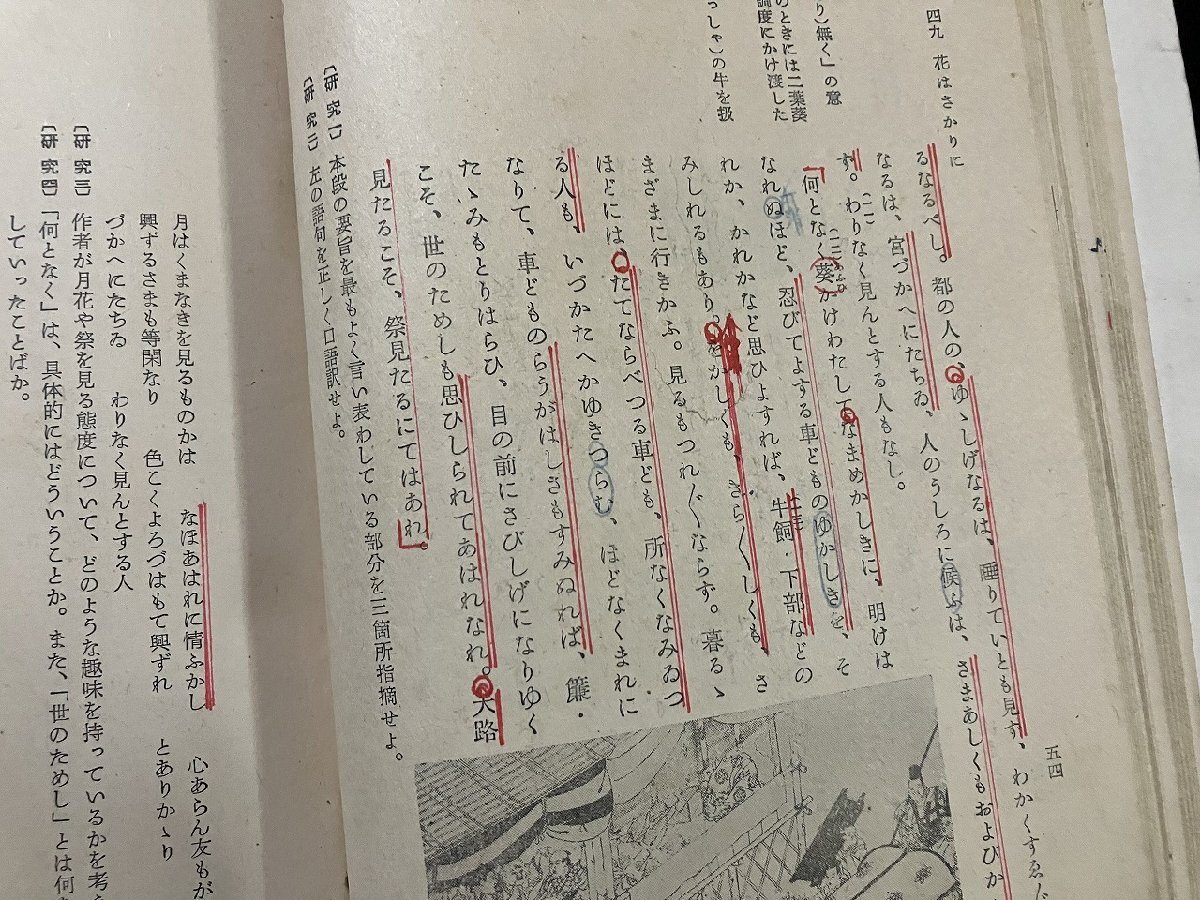 四九 花はさかりに
五四
り)無く」の意
のときには二葉葵
調度にかけ渡した
っしゃ)の牛を扱
るなるべし。都の人の、ゆゝしげなるは、睡りていとも見ず、わかくすゑ
なるは、宮づかへにたちゐ、人のうしろに候ふは、さまあしくもおよびか
ず。わりなく見んとする人もなし。
「何となく葵かけわたしてなまめかしきに、明けは
なれぬほど、忍びてよする車どものゆかしきを、そ
れか、かれかなど思ひよすれば、牛飼・下部などの
みしれるもあり。をかしくも、さら〳〵しくも、さ
まざまに行きかふ。見るもつれ〴〵ならず。暮るゝ
ほどには、たてならべつる車ども、所なくなみゐつ
る人も、いづかたへかゆきつらむ、ほどなくまれに
なりて、車どものらうがはしさもすみぬれば、簾・
たゝみもとりはらひ、目の前にさびしげになりゆく
こそ、世のためしも思ひしられてあはれなれ。大路
見たるこそ、祭見たるにてはあれ」。
〔研究一〕本段の要旨を最もよく言い表わしている部分を三箇所指摘せよ。
〔研究二〕左の語句を正しく口語訳せよ。
月はくまなきを見るものかは なほあはれに情ふかし 心あらん友もが
興ずるさまも等閑なり 色こくよろづはもて興ずれ とありかゝり
づかへにたちゐ わりなく見んとする人
〔研究三〕作者が月花や祭を見る態度について、どのような趣味を持っているかを考
〔研究四〕「何となく」は、具体的にはどういうことか。また、「世のためし」とは何
していったことばか。